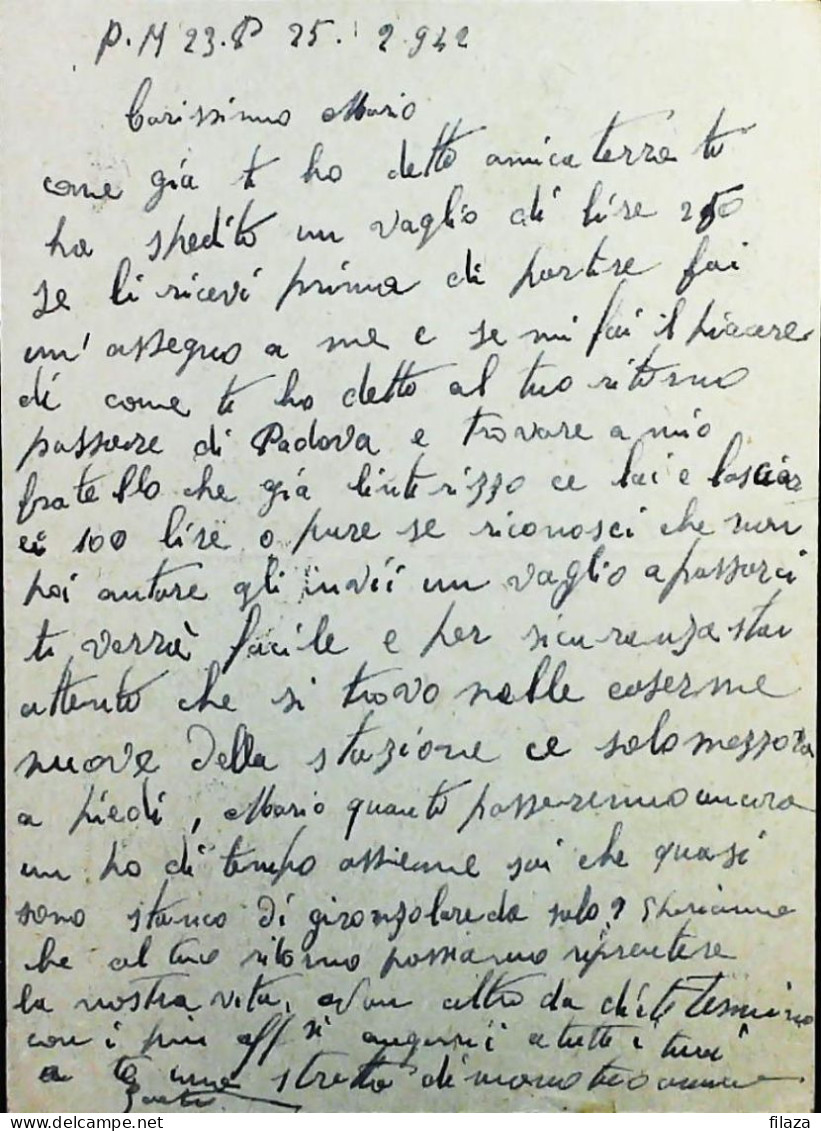 P.M 23.8 25. 2.942
Carissimo Mario
come già ti ho detto amicaterra ti
ho spedito un vaglio di lire 250
se li ricevi prima di partire fai
un' assegno a me e se mi fai il piacere
di come ti ho detto al tuo ritorno
passare di Padova e trovare a mio
fratello che già linterizzo ce lai e lasciar
ci 100 lire o pure se riconosci che non
poi antare gli invii un vaglio apassarci
ti verrà facile e per sicuranza stai
attento che si trovo nelle caserme
nuove della stazione ce solo mezzora
a piedi, Mario quanto passeremo ancora
un po di tempo assieme sai che quasi
sono stanco di gironzolare da solo? Speriamo
che al tuo ritorno possiamo riprentere
la nostra vita, Non altro da dirti termino
con i più aff si auguri a tutti i tuoi
a te una stretta di mano tuo amico
filaza - delcampe.net